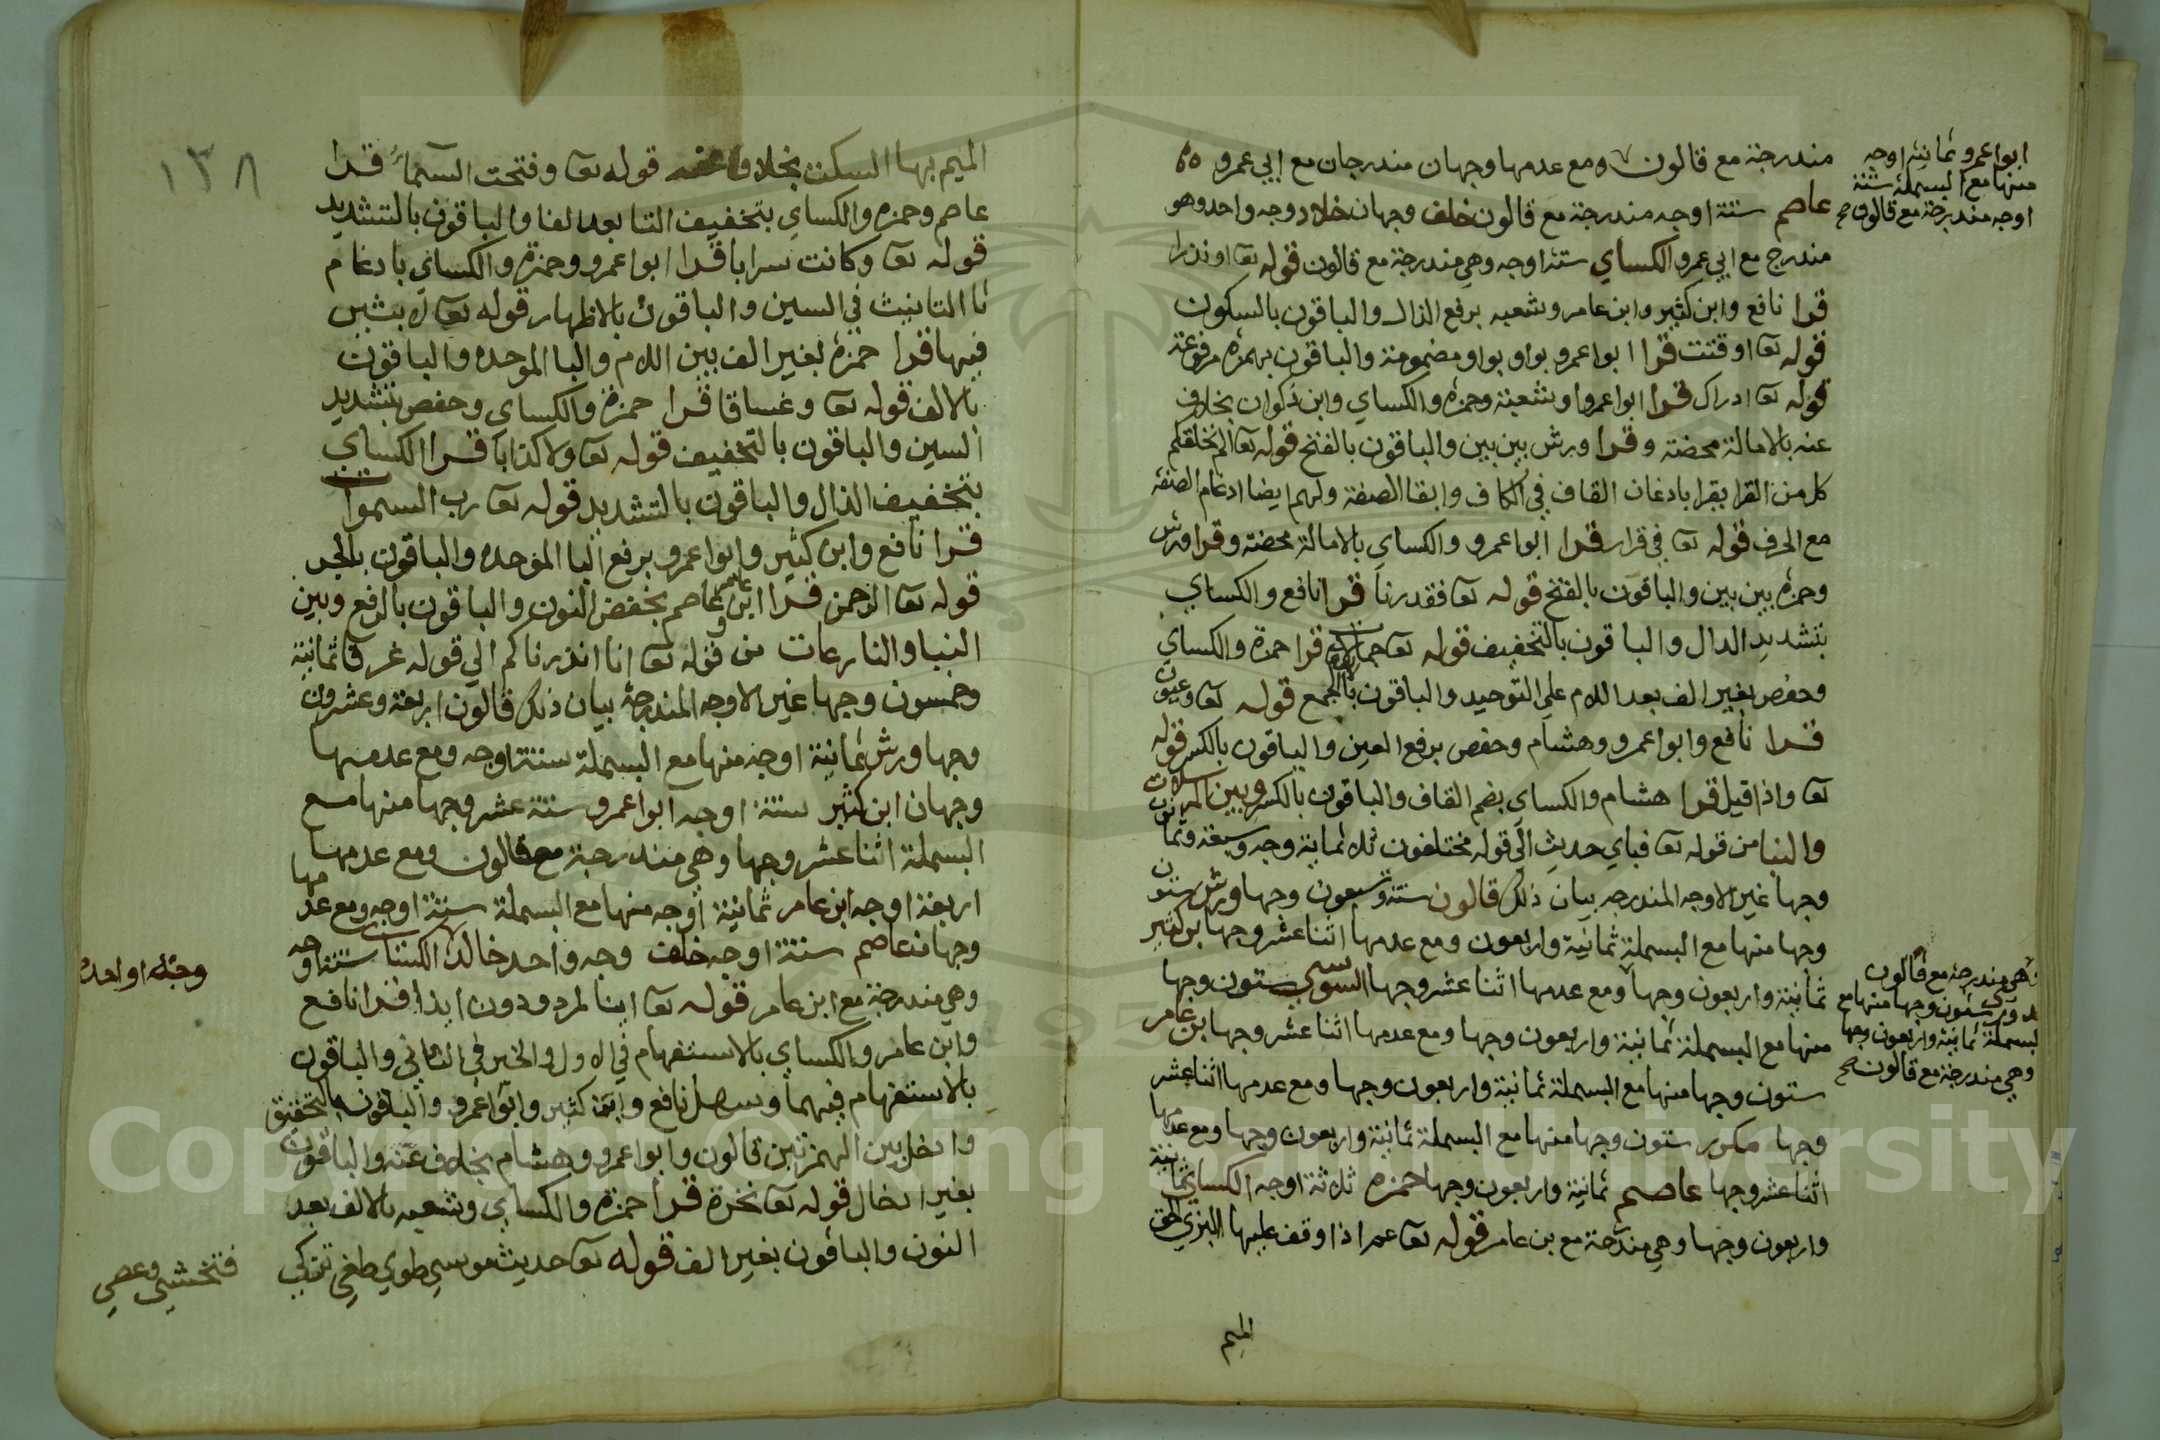 مندرجة مع قالون ومع عدمها وجهان مندرجان مع ابي عمرو
عاصم ستة اوجه مندرجة مع قالون خلف وجهان خلاد وجه واحد وهو
مندرج مع ابي عمرو الكساي ستة اوجه وهي مندرجة مع قالون قوله تعا او نذرا
قرا نافع وابن كثير وابن عامر وشعبه برفع الذال والباقون بالسكون
قوله تعا اوقتت قرا ابوا عمرو بواو مضمومة والباقون بهمزه مرفوعة
قوله تعا ادراك قرا ابوا عمرو وشعبة وحمزه والكساي وابن ذكوان بخلاف
عنه بالامالة محضة وقرا ورش بين بين والباقون بالفتح قوله تعا الم نخلقكم
كل من القرا يقرا بادغان القاف في الكاف وابقا الصفة ولهم ايضا ادغام الصفة
مع الحرف قوله تعا في قرار قرا ابوا عمرو والكساي بالامالة محضة وقرا ورش
وحمزه بين بين والباقون بالفتح قوله تعا فقدرنا قرا نافع والكساي
بتشديد الدال والباقون بالتخفيف قوله تعا جمالات قرا حمزة والكساي
وحفص بغير الف بعد اللام علي التوحيد والباقون بالجمع قوله تعا وعيون
قرا نافع وابوا عمرو وهشام وحفص برفع العين والباقون بالكسر قوله
تعا واذا قيل قرا هشام والكساي بضم القاف والباقون بالكسر وبين المرسلات
والنبا من قوله تعا فباي حديث الي قوله مختلفون ثلاثماية وجه وسبعة وثمانون
وجها غير الاوجه المندرجه بيان ذلك قالون ستة وتسعون وجها ورش ستون
وجها منها مع البسملة ثمانية واربعون ومع عدمها اثنا عشر وجها بن كثير
ثمانية واربعون وجها ومع عدمها اثنا عشر وجها السوسي ستون وجها
منها مع البسملة ثمانية واربعون وجها ومع عدمها اثنا عشر وجها بن عامر
ستون وجها منها مع البسملة ثمانية واربعون وجها ومع عدمها اثنا عشر
وجها مكرر ستون وجها منها مع البسملة ثمانية واربعون وجها ومع عدمها
اثنا عشر وجها عاصم ثمانية واربعون وجها حمزه ثلاثة اوجه الكساي ثمانية
واربعون وجها وهي مندرجة مع بن عامر قوله تعا عم اذا وقف عليها البزي الحق
الميم
ابوا عمرو ثمانية اوجه
منها مع البسملة ستة
اوجه مندرجة مع قالون صح
وهي مندرجة مع قالون
ستون وجها منها مع
البسملة ثمانية واربعون وجها
وهي مندرجة مع قالون صح
١٣٨
الميم بها السكت بخلاف قوله تعا وفتحت السماء قرا
عاصم وحمزه والكساي بتخفيف التا بعد الفا والباقون بالتشديد
قوله تعا وكانت سرابا قرا ابوا عمرو وحمزة والكساي بادغام
تا التانيث في السين والباقون بالاظهار قوله تعا لابثين
فيها قرا حمزه بغير الف بين اللام والبا الموحده والباقون
بالالف قوله تعا وغساقا قرا حمزة والكساي وحفص بتشديد
السين والباقون بالتخفيف قوله تعا ولا كذابا قرا الكساي
بتخفيف الذال والباقون بالتشديد قوله تعا رب السموات
قرا نافع وابن كثير وابوا عمرو برفع البا الموحده والباقون بالجر
قوله تعا الرحمن قرا ابن عامر وعاصم بخفض النون والباقون بالرفع وبين
النبا والنازعات من قوله تعا انا انذرناكم الي قوله غرقا ثمانية
وخمسون وجها غير الاوجه المندرجة بيان ذلك قالون اربعة وعشرون
وجها ورش ثمانية اوجه منها مع البسملة ستة اوجه ومع عدمها
وجهان ابن كثير ستة اوجه ابوا عمرو ستة عشر وجها منها مع
البسملة اثنا عشر وجها وهي مندرجة مع قالون ومع عدمها
اربعة اوجه ابن عامر ثمانية اوجه منها مع البسملة ستة اوجه ومع عدمها
وجهان عاصم ستة اوجه خلف وجه واحد خلاد الكساي ستة اوجه
وهي مندرجة مع ابن عامر قوله تعا اينا لمردودون ايذا قرا نافع
وابن عامر والكساي بالاستفهام في الاول والخبر في الثاني والباقون
بالاستفهام فيهما وسهل نافع وابن كثير وابوا عمرو والباقون بالتحقيق
وادخل بين الهمزتين قالون وابوا عمرو وهشام بخلاف عنه والباقون
بغير ادخال قوله تعا نخرة قرا حمزه والكساي وشعبه بالالف بعد
النون والباقون بغير الف قوله تعا حديث موسي طوي طغي تزكي
فتخشي وعصي
Copyright © King Saud University